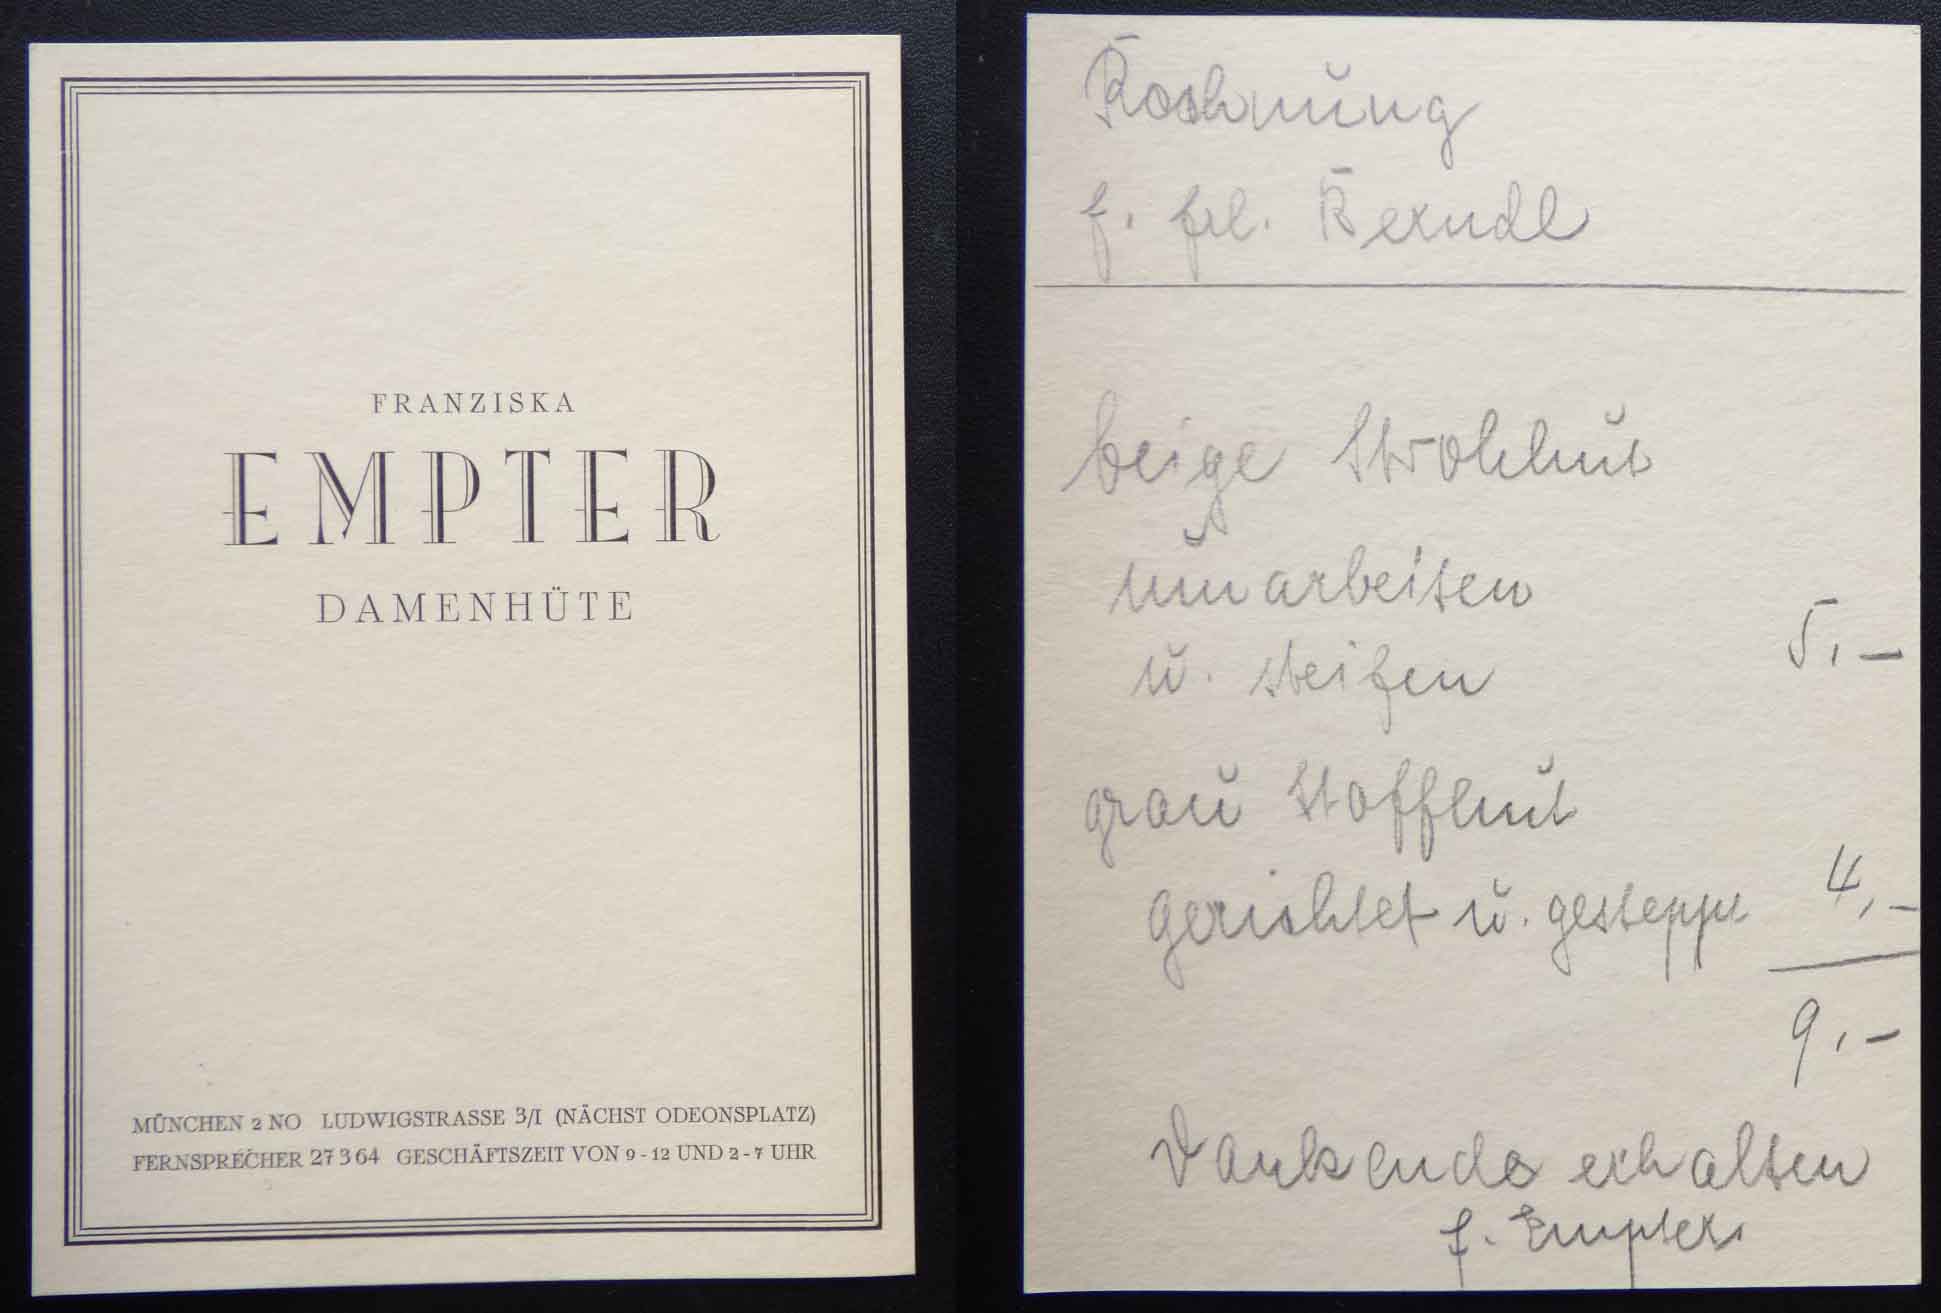 FRANZISKA
EMPTER
DAMENHÜTE
MÜNCHEN 2 NO LUDWIGSTRASSE 3/I (NÄCHST ODEONSPLATZ)
FERNSPRECHER 27364 GESCHÄFTSZEIT VON 9-12 UND 2-7 UHR
Rechnung
f. Frl. Kerndl
beige Strohhut
umarbeiten
u. steifen 5,-
grau Stoffhut
gerichtet u. gesteppt 4,-
9,-
Dankend erhalten
F. Empter